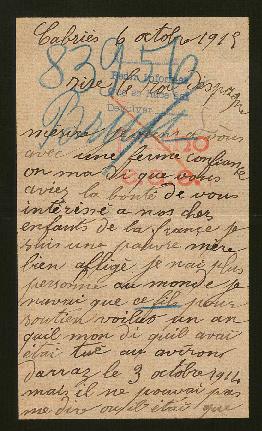 Cabries 6 octobre 1915
83956
sire le Roi d'espagne
je viens a vous
avec une ferme confiance
on ma di que vous
aviez la bonté de vous
intéressé a nos cher
enfants de la france je
suis une pauvre mère
bien affligé je nai plus
personne au monde je
navai que ce fils pour
soutien voilas un an
quil mon di quil avai
étai tué aux avirons
darraz le 3 octobre 1914
mais il ne pouvai pas
me dire ou il étai que